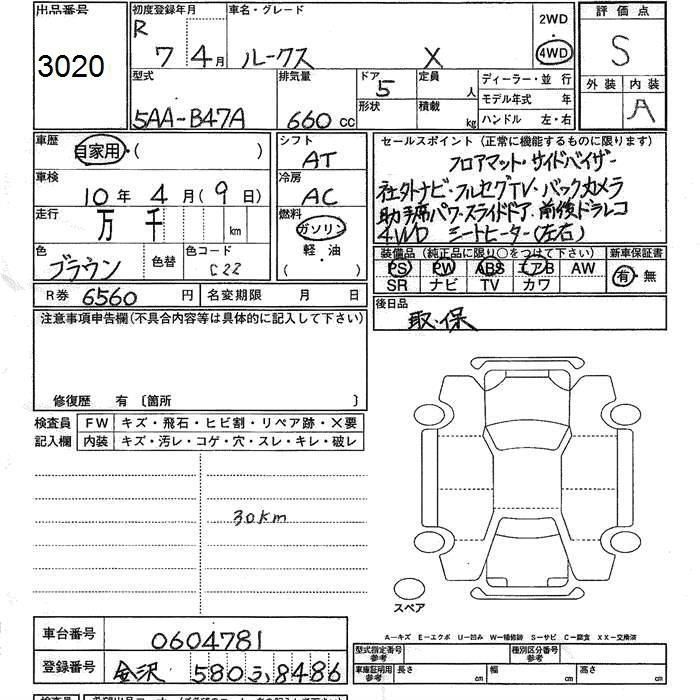 出品番号
3020
初度登録年月
R 7 4月
車名・グレード
ルークス X
2WD
・
4WD
評価点
S
外装 内装
A
型式
5AA-B47A
排気量
660 cc
ドア
5
形状
定員
人
積載
kg
ディーラー・並行
モデル年式 年
ハンドル 左・右
車歴
自家用・( )
車検
10年 4月(9日)
走行
万 千 km
色
ブラウン
色替
色コード
C22
シフト
AT
冷房
AC
燃料
ガソリン
軽・油
( )
セールスポイント(正常に機能するものに限ります)
フロアマット・サイドバイザー
社外ナビ・フルセグTV・バックカメラ
助手席パワースライドドア・前後ドラレコ
4WD シートヒーター(左右)
装備品(純正品に限り○をつけて下さい)
PS PW ABS エアB AW
SR ナビ TV カワ
新車保証書
有・無
R券 6560円
名変期限 月 日
後日品
取・保
注意事項申告欄(不具合内容等は具体的に記入して下さい)
修復歴 有 〔箇所 〕
検査員
記入欄
FW キズ・飛石・ヒビ割・リペア跡・×要
内装 キズ・汚レ・コゲ・穴・スレ・キレ・破レ
30km
スペア
車台番号
0604781
登録番号
金沢 580 ふ 8486
A-キズ E-エクボ U-凹み W-補修跡 S-サビ C-腐食 XX-交換済
型式指定番号
参考
種別区分番号
参考
車庫証明用
参考
長さ cm 幅 cm 高さ cm